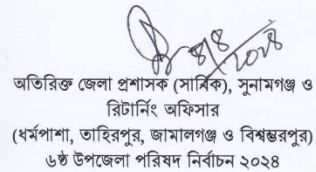 ৪/৪/২০২৪
অতিরিক্ত জেলা প্রশাসক (সার্বিক), সুনামগঞ্জ ও
রিটার্নিং অফিসার
(ধর্মপাশা, তাহিরপুর, জামালগঞ্জ ও বিশ্বম্ভরপুর)
৬ষ্ঠ উপজেলা পরিষদ নির্বাচন ২০২৪